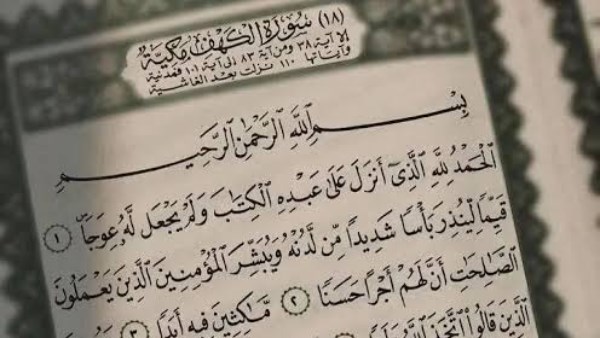 (١٨) سُورَةُ الْكَهْفِ مَكِّيَّة
إلا آية ٣٨ ومن آية ٨٣ إلى آية ١٠١ فمدنية
وآياتها ١١٠ نزلت بعد الغاشية
بِسْمِ اللَّهِ الرَّحْمَٰنِ الرَّحِيمِ
الْحَمْدُ لِلَّهِ الَّذِي أَنْزَلَ عَلَىٰ عَبْدِهِ الْكِتَابَ وَلَمْ يَجْعَلْ لَهُ عِوَجًا ١
قَيِّمًا لِيُنْذِرَ بَأْسًا شَدِيدًا مِنْ لَدُنْهُ وَيُبَشِّرَ الْمُؤْمِنِينَ الَّذِينَ يَعْمَلُونَ
الصَّالِحَاتِ أَنَّ لَهُمْ أَجْرًا حَسَنًا ٢ مَّاكِثِينَ فِيهِ أَبَدًا ٣
الَّذِينَ قَالُوا اتَّخَذَ اللَّهُ